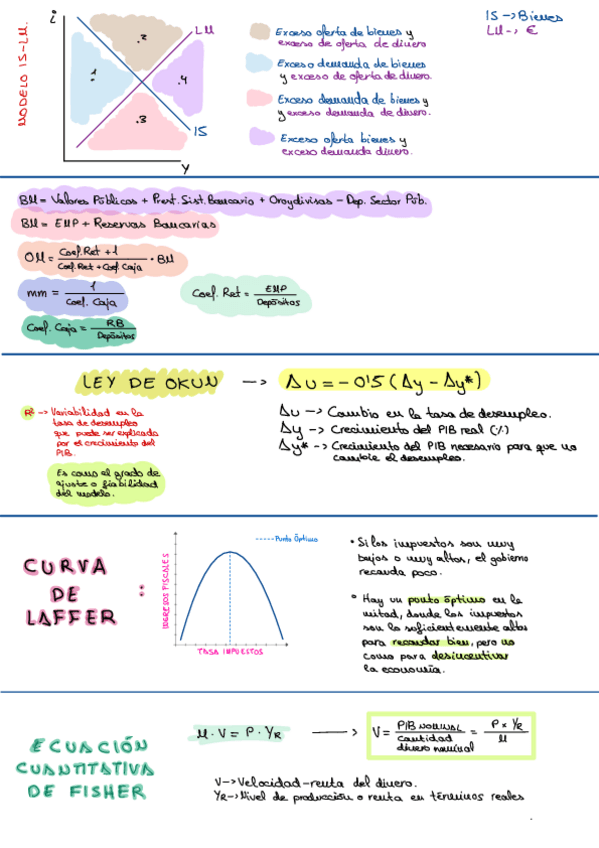 MODELO IS-LM.
i
LM
.2
1
.4
.3
IS
Y
Exceso oferta de bienes y
exceso de oferta de dinero
Exceso demanda de bienes
y exceso de oferta de dinero.
Exceso demanda de bienes y
y exceso demanda de dinero.
Exceso oferta bienes y
exceso demanda dinero.
IS -> Bienes
LM -> €
BM = Valores Públicos + Prest. Sist. Bancario + Oro y divisas - Dep. Sector Púb.
BM = EMP + Reservas Bancarias
OM = Coef. Ret + 1 / Coef. Ret + Coef. Caja · BM
mm = 1 / Coef. Caja
Coef. Ret = EMP / Depósitos
Coef. Caja = RB / Depósitos
LEY DE OKUN -> Δu = -0'5 (Δy - Δy*)
R² -> Variabilidad en la
tasa de desempleo
que puede ser explicada
por el crecimiento del
PIB.
Es como el grado de
ajuste o fiabilidad
del modelo.
Δu -> Cambio en la tasa de desempleo.
Δy -> Crecimiento del PIB real (%)
Δy* -> Crecimiento del PIB necesario para que no
cambie el desempleo.
CURVA
DE
LAFFER
:
INGRESOS FISCALES
Punto Óptimo
TASA IMPUESTOS
• Si los impuestos son muy
bajos o muy altos, el gobierno
recauda poco.
• Hay un punto óptimo en la
mitad, donde los impuestos
son lo suficientemente altos
para recaudar bien, pero no
como para desincentivar
la economía.
ECUACIÓN
CUANTITATIVA
DE FISHER
M · V = P · YR -> V = PIB NOMINAL / cantidad dinero nominal = P × YR / M
V -> Velocidad-renta del dinero.
YR -> Nivel de producción o renta en términos reales